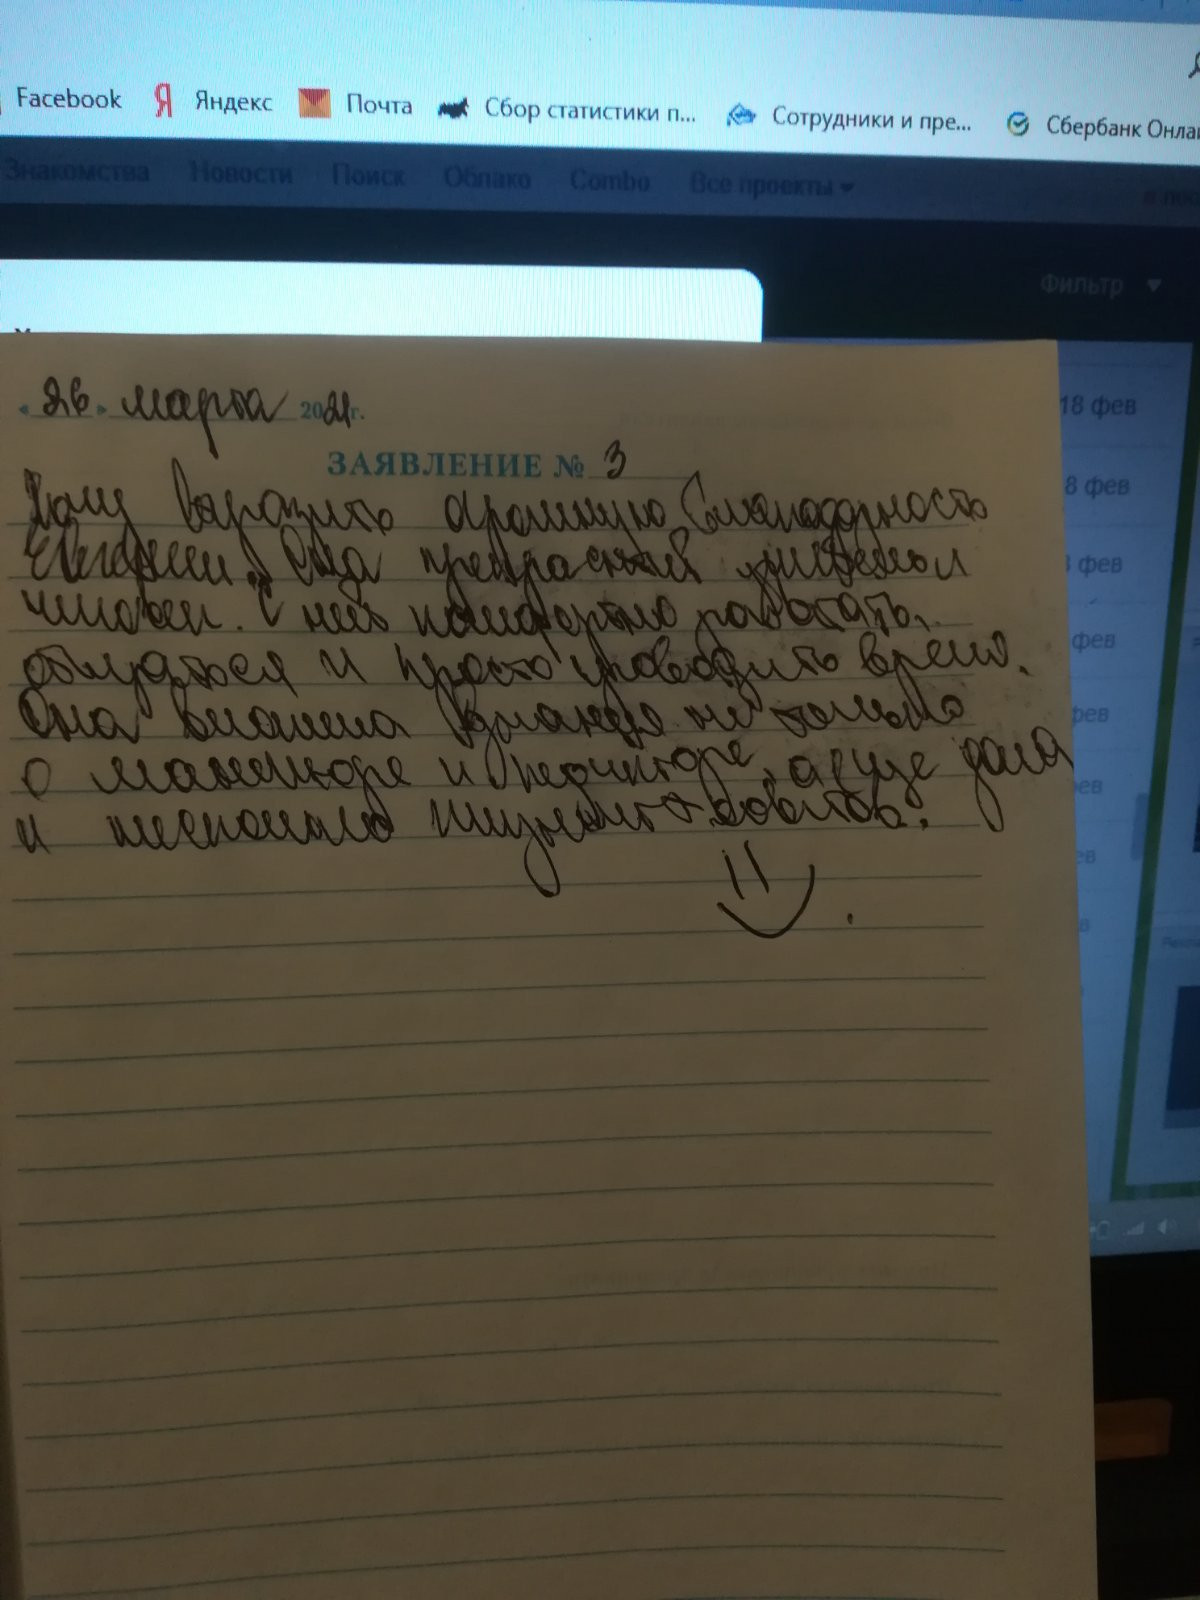 Facebook Яндекс Почта Сбор статистики п... Сотрудники и пре... Сбербанк Онлай
Знакомства Новости Поиск Облако Combo Все проекты
Фильтр
18 фев
8 фев
фев
фев
фев
«26» марта 2021г.
ЗАЯВЛЕНИЕ № 3
Хочу выразить огромную благодарность
Евгении. Она прекрасный учитель и
человек. С ней комфортно работать,
общаться и просто проводить время.
Она вложила знания не только
о маникюре и педикюре, а еще дала
и несколько жизненных советов.